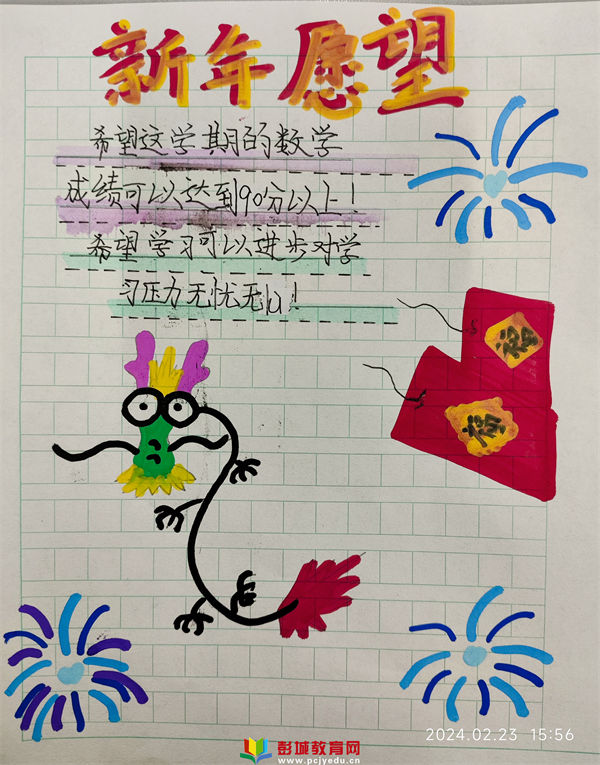 新年愿望
希望这学期的数学
成绩可以达到90分以上！
希望学习可以进步对学
习压力无忧无
福
福
2024.02.23 15:56
彭城教育网
www.pcjyedu.cn